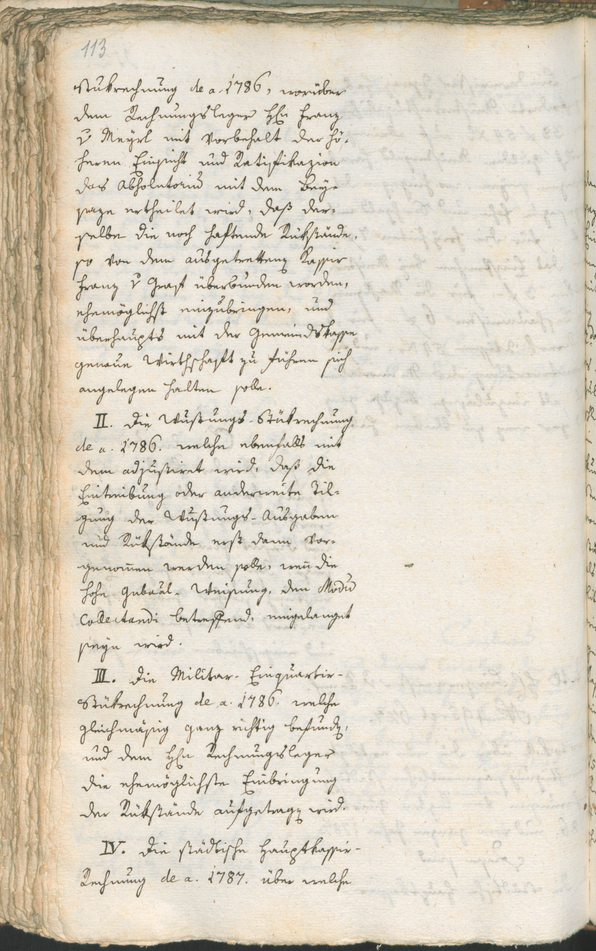 113
stükrechnung de a. 1786, worüber
dem Rechnungsleger Hℓn Franz
v Meyrl mit Vorbehalt der hö-
heren Einsicht und Ratifikazion
das Absolutorium mit dem Bey-
saze ertheilet wird, daß der-
selbe die noch haftende Rükstände,
so von dem ausgetrettenen Kassir
Franz v Grast überbunden worden,
ehemöglichst einzubringen, und
überhaupts mit der Gemeindskasse
genaue Wirthschaft zu führen sich
angelegen halten solle.
II. Die Wustungs-Stükrechnung
de a. 1786. welche ebenfalls mit
dem adjustiret wird, daß die
Eintreibung oder anderweite Til-
gung der Wustungs-Ausgaben
und Rükstände erst dann vor-
genommen werden solle, wenn die
hohe Gubernal-Weisung, den Modum
Collectandi betreffend, eingelanget
seyn wird.
III. Die Militar-Einquartir-
Stükrechnung de a. 1786. welche
gleichmäsig ganz richtig befunden,
und dem Hℓn Rechnungsleger
die ehemöglichste Einbringung
der Rükstände aufgetragen wird.
IV. Die städtische Hauptkassir-
Rechnung de a. 1787. über welche